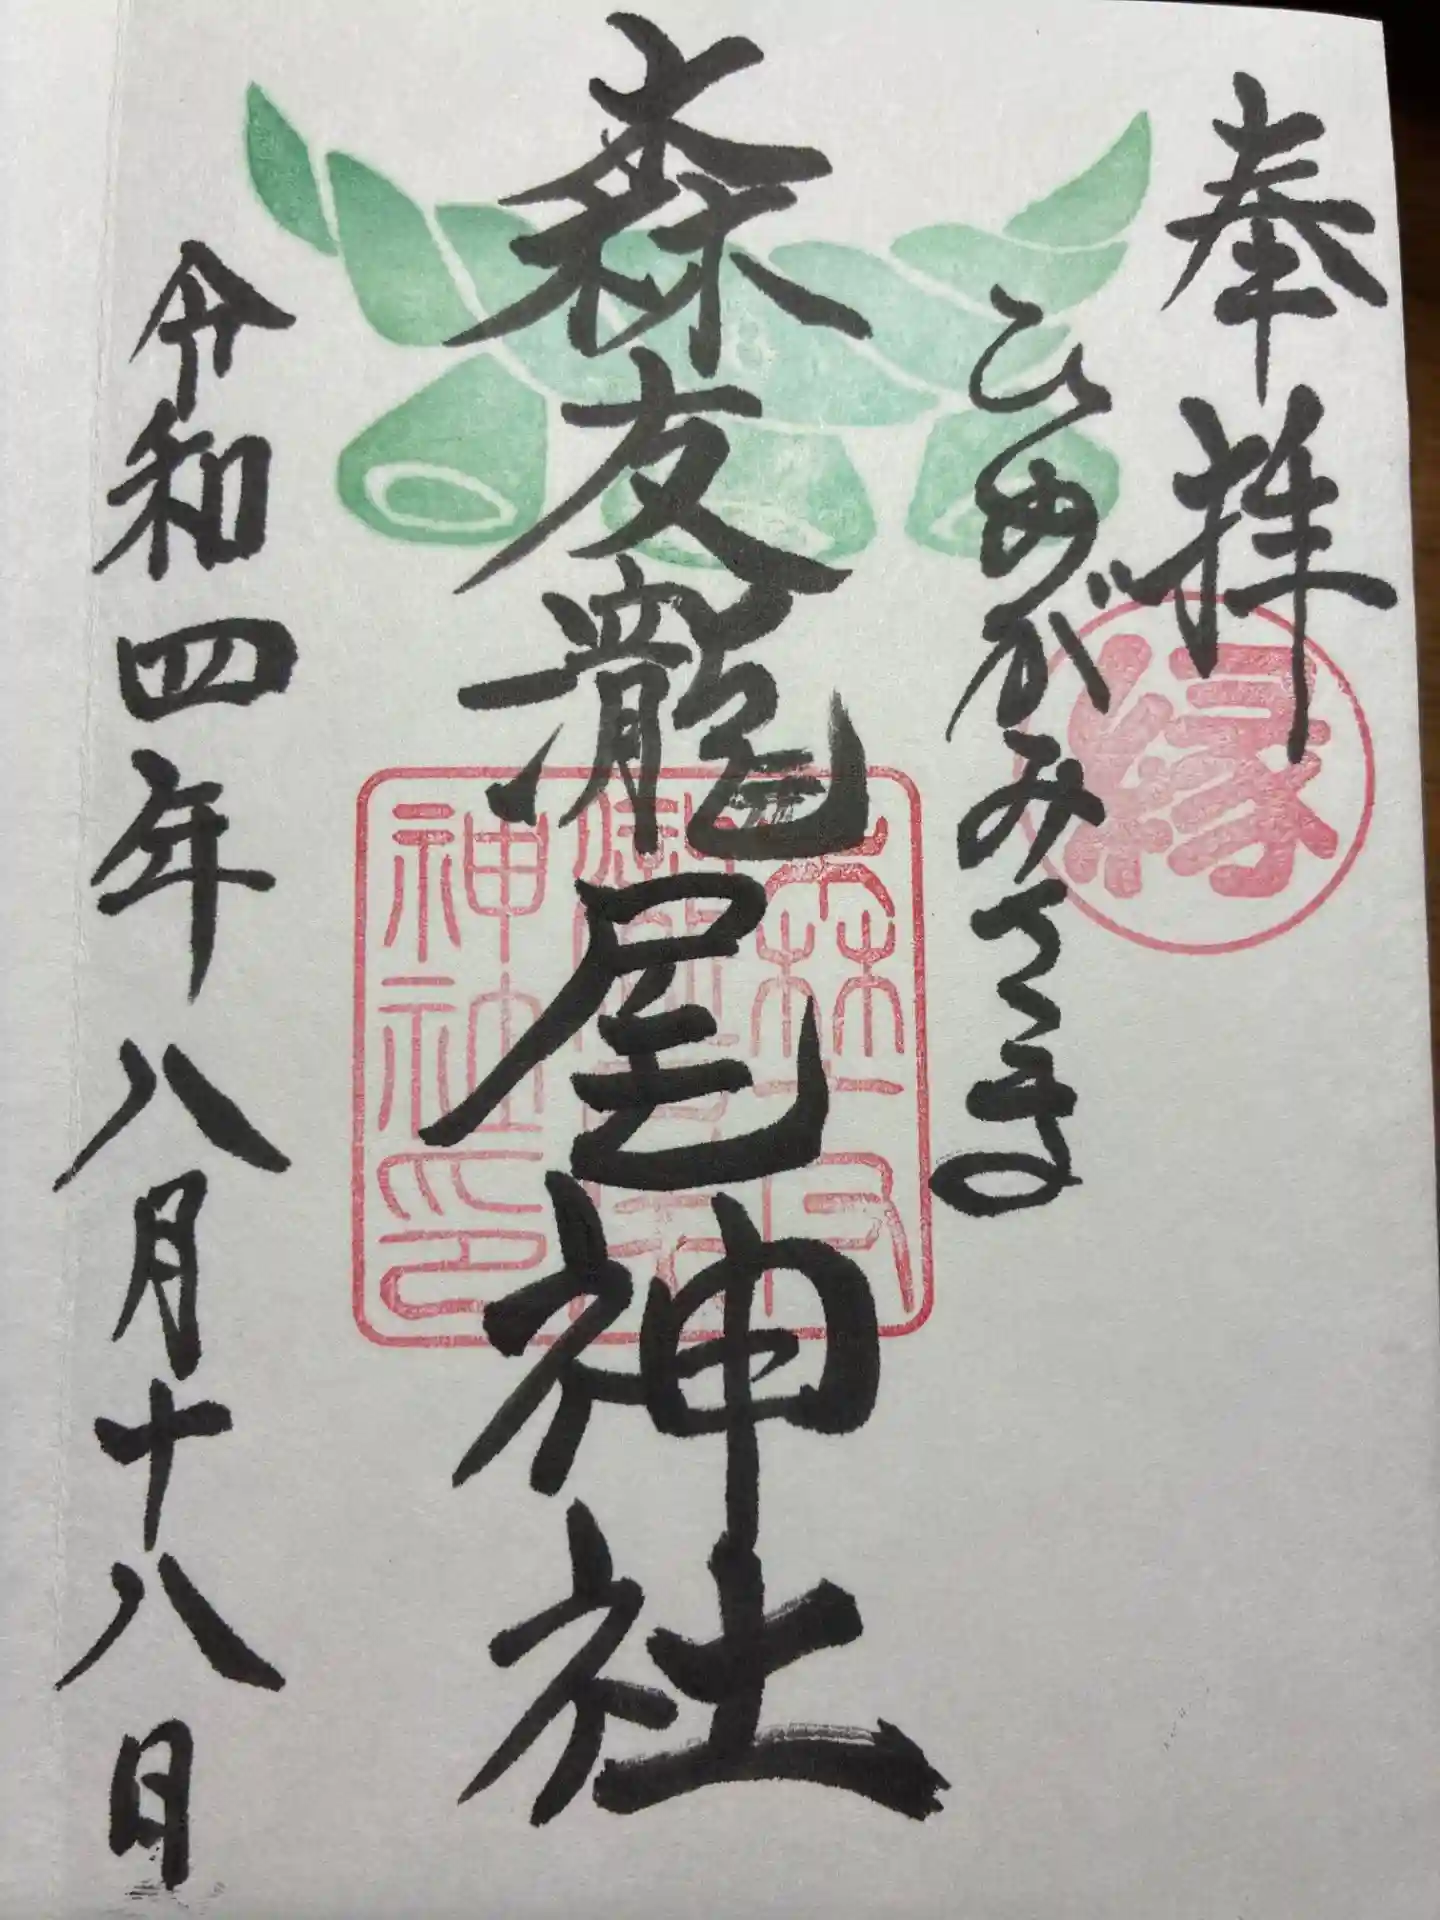 奉拝
縁
ひめがみさま
森友龍尾神社
神社印
令和四年八月十八日